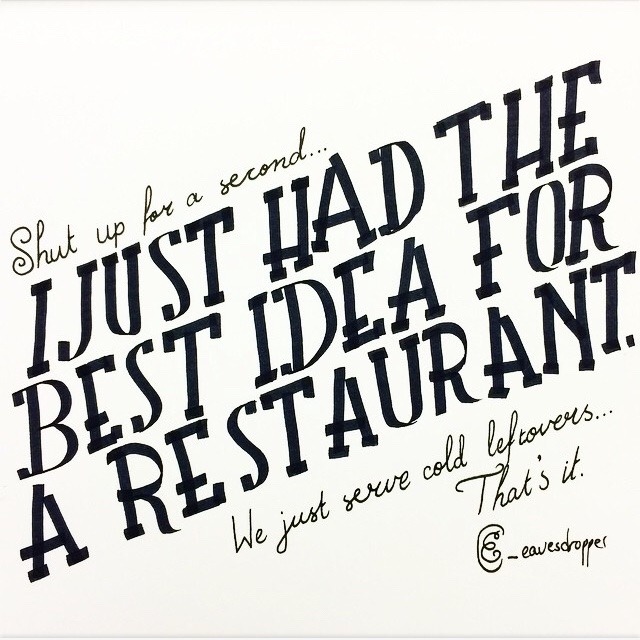 Shut up for a second...
I JUST HAD THE
BEST IDEA FOR
A RESTAURANT.
We just serve cold leftovers...
That's it.
E_eavesdropper